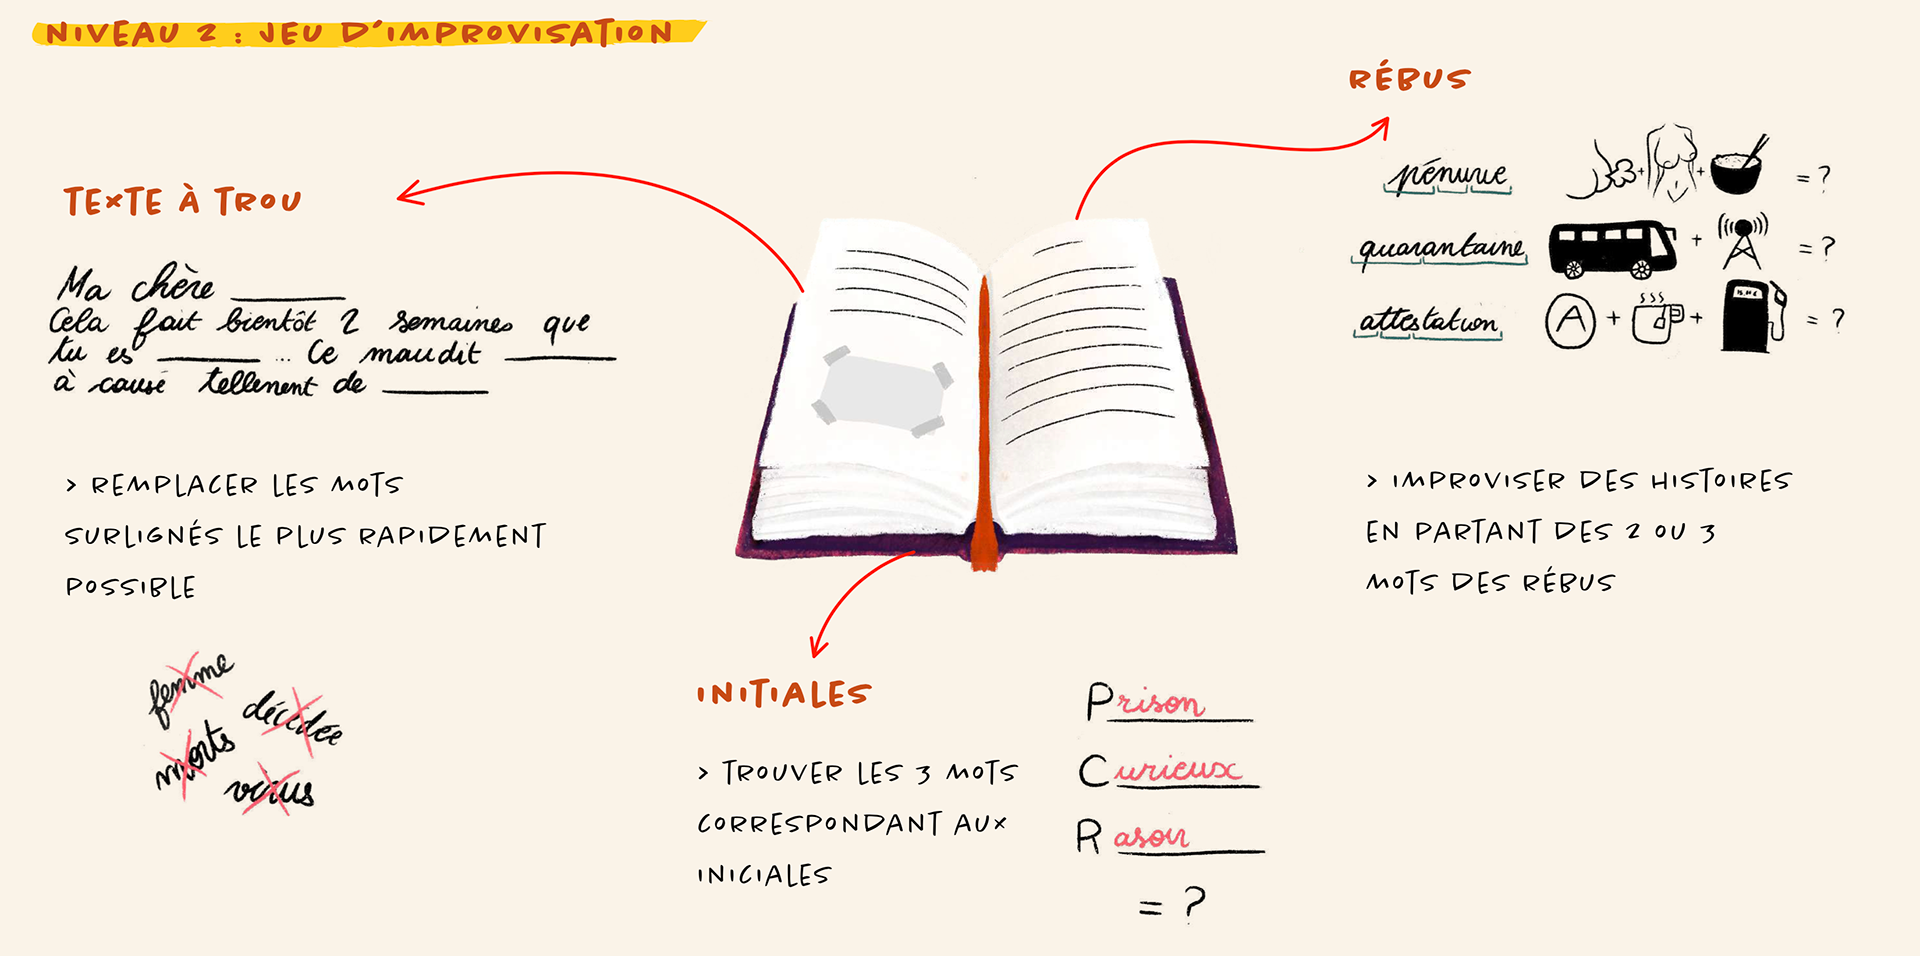 NIVEAU 2 : JEU D'IMPROVISATION
TEXTE À TROU
Ma chère ______
Cela fait bientôt 2 semaines que
tu es ______ ... Ce maudit ______
à causé tellement de ______
> REMPLACER LES MOTS
SURLIGNÉS LE PLUS RAPIDEMENT
POSSIBLE
femme
décidée
morts
virus
INITIALES
> TROUVER LES 3 MOTS
CORRESPONDANT AUX
INICIALES
Prison
Curieux
Rasoir
= ?
RÉBUS
pénurie + + = ?
quarantaine + = ?
attestation A + + = ?
> IMPROVISER DES HISTOIRES
EN PARTANT DES 2 OU 3
MOTS DES RÉBUS